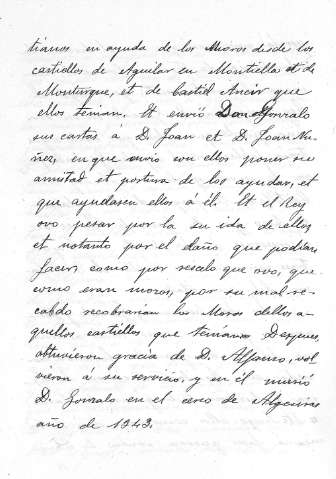 tianos en ayuda de los Moros desde los
castiellos de Aguilar en Montiella et de
Monturque, et de Castil Ancir que
ellos tenian. Et envió Don Gonzalo
sus cartas a D. Joan et D. Joan Nu-
ñez, en que ovio con ellos poner su
amistad et postura de los ayudar, et
que ayudasen ellos á él. Et el Rey
ovo pesar por la su ida de ellos
et notanto por el daño que podian
facer, como por recelo que ovo, que
como eran mozos, por su mal re-
cabdo recobrarian los Moros dellos a-
quellos castiellos que tenian. Despues,
obtuvieron gracia de D. Alfonso, vol
vieron á su servicio, y en él murió
D. Gonzalo en el cerco de Algeciras
año de 1343.